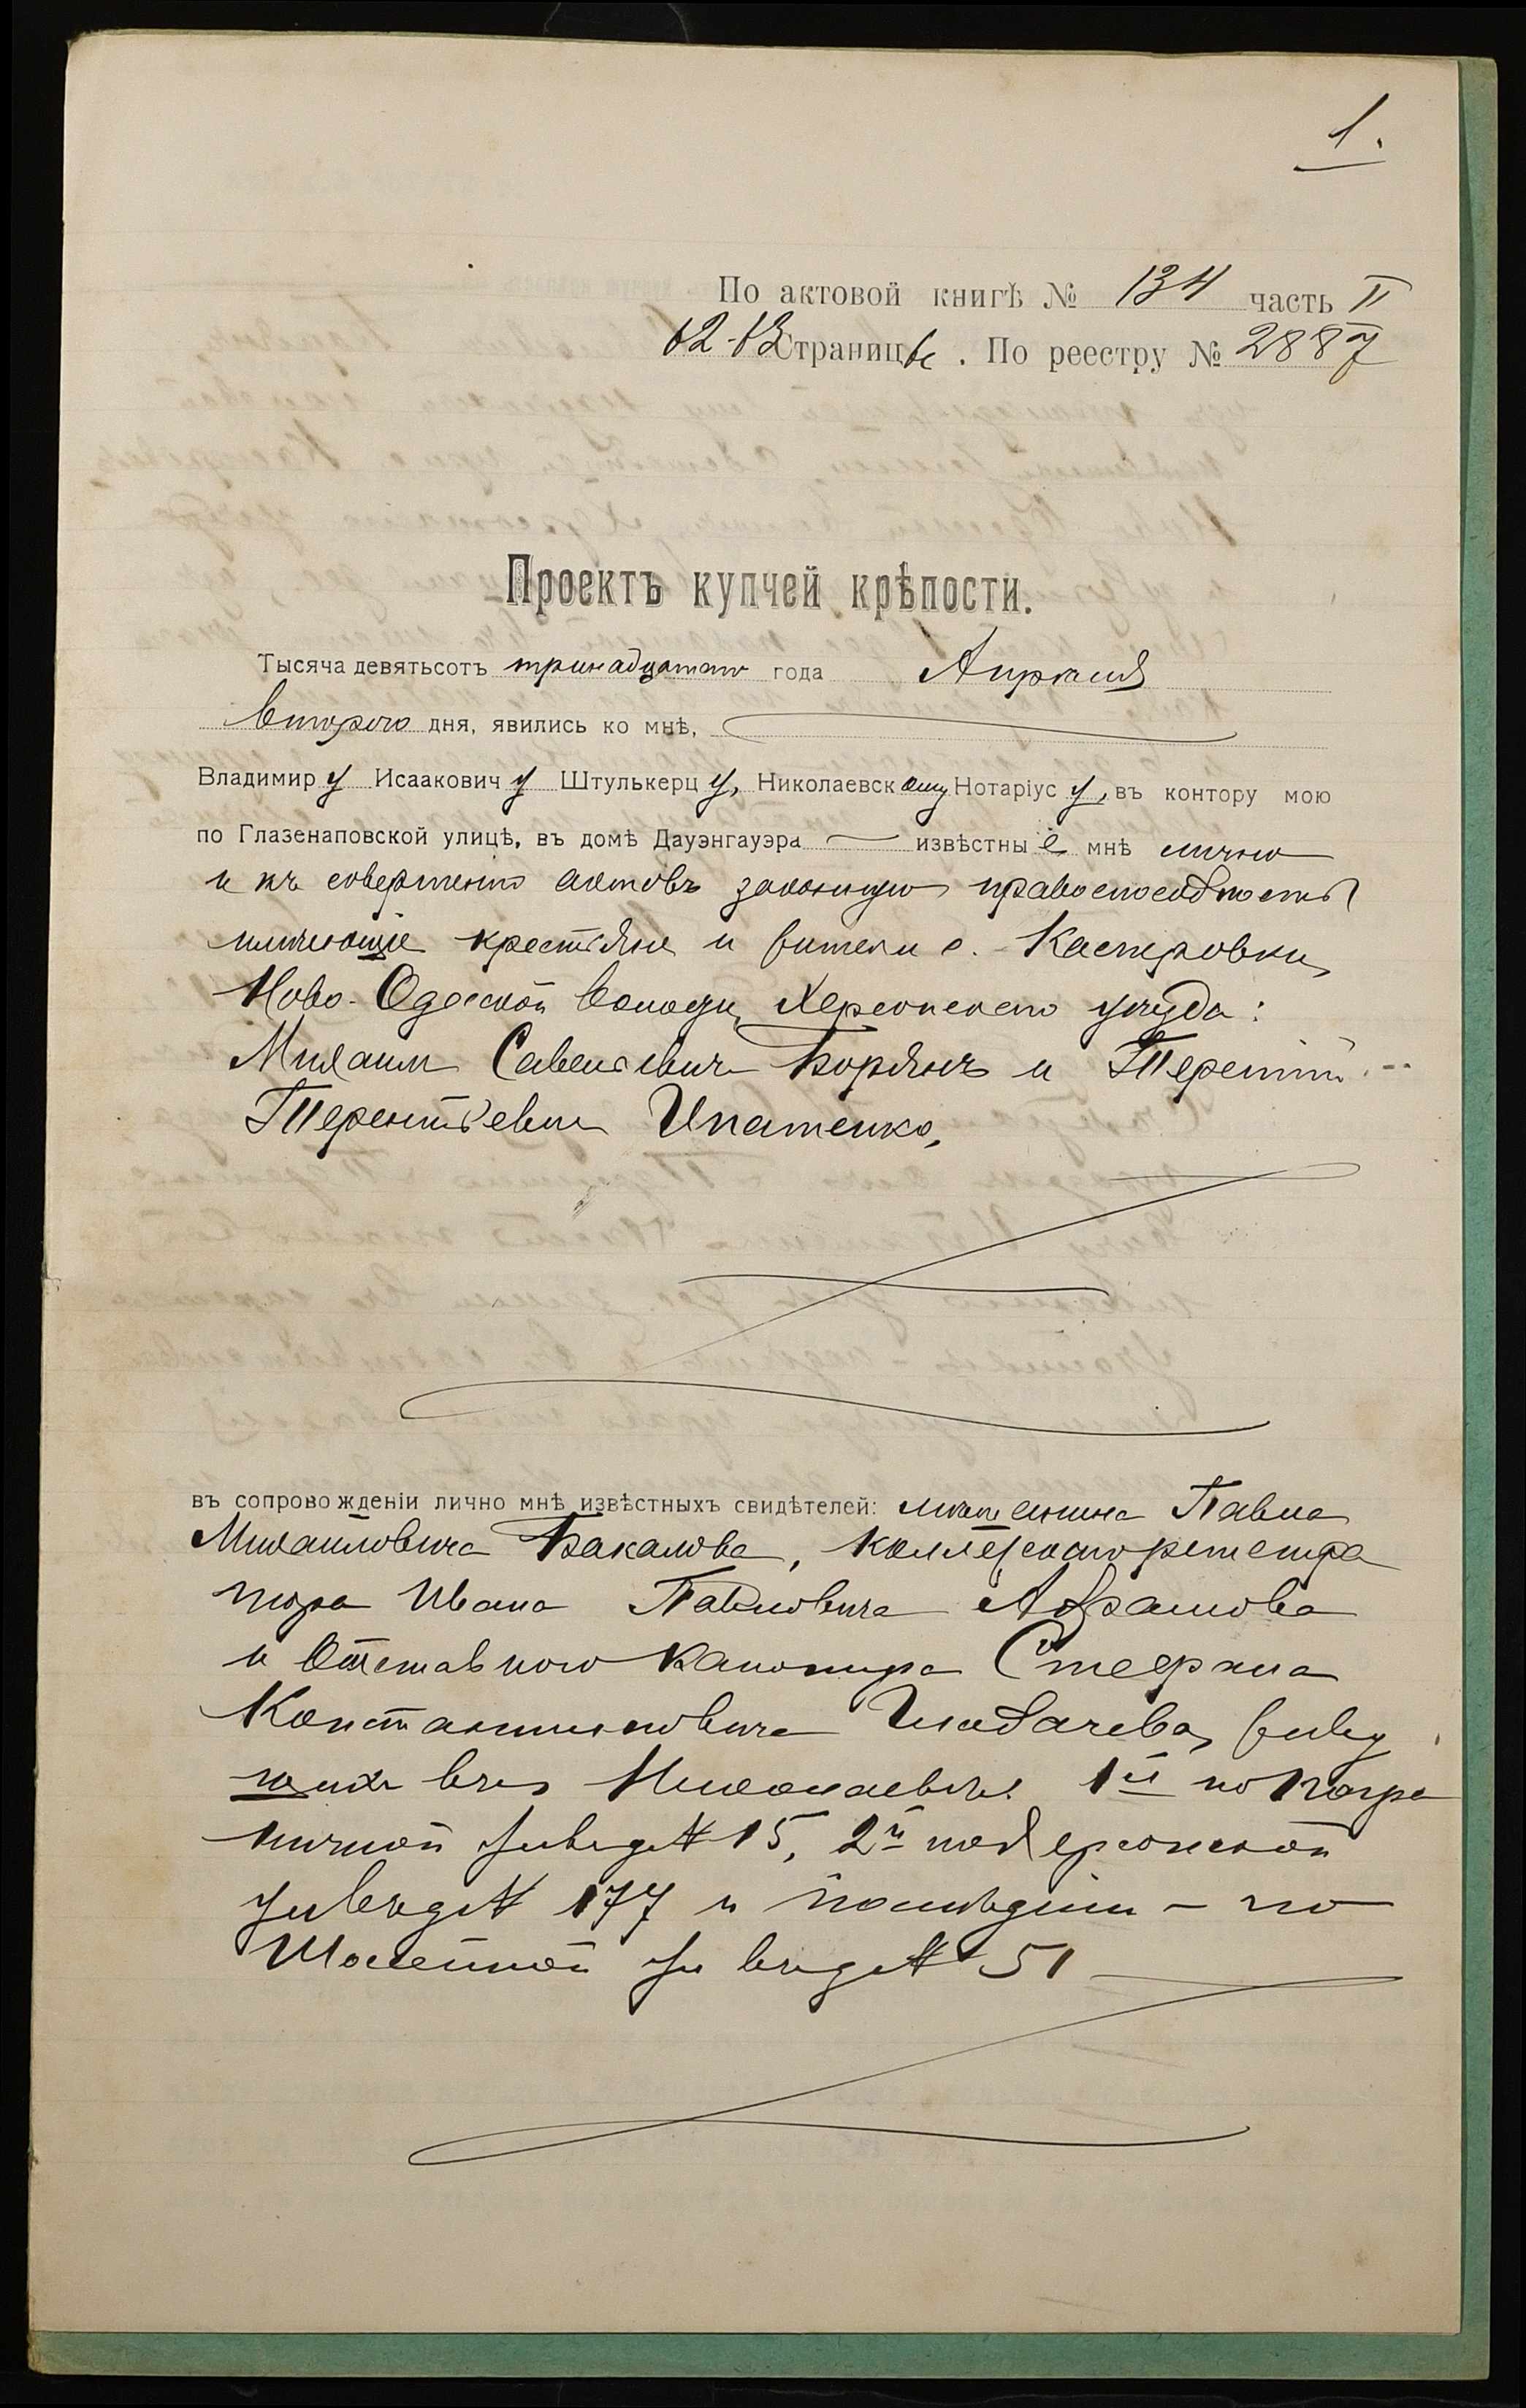 1.
По актовой книгѣ № 134 часть II
62-63 Страницѣ. По реестру № 2887
Проектъ купчей крѣпости.
Тысяча девятьсотъ тринадцатаго года Апрѣля
второго дня, явились ко мнѣ,
Владимиру Исааковичу Штулькерцу, Николаевскому Нотаріусу, въ контору мою
по Глазенаповской улицѣ, въ домѣ Дауэнгауэра — извѣстные мнѣ лично
и къ совершенію актовъ законную правоспособность
имѣющіе крестьяне и жители с. Касперовки,
Ново-Одесской волости, Херсонскаго уѣзда:
Михаилъ Савельевичъ Борянъ и Терентій
Терентьевичъ Ипатенко,
въ сопровожденіи лично мнѣ извѣстныхъ свидѣтелей: мѣщанина Павла
Михайловича Бакалова, коллежскаго регистра
тора Ивана Павловича Абрамова
и отставного канонира Стефана
Константиновича живу
щихъ въ г. Николаевѣ: 1й по Погра
ничной ул. въ д. № 15, 2й по Херсонской
ул. въ д. № 177 и послѣдній — по
ул. въ д. № 51